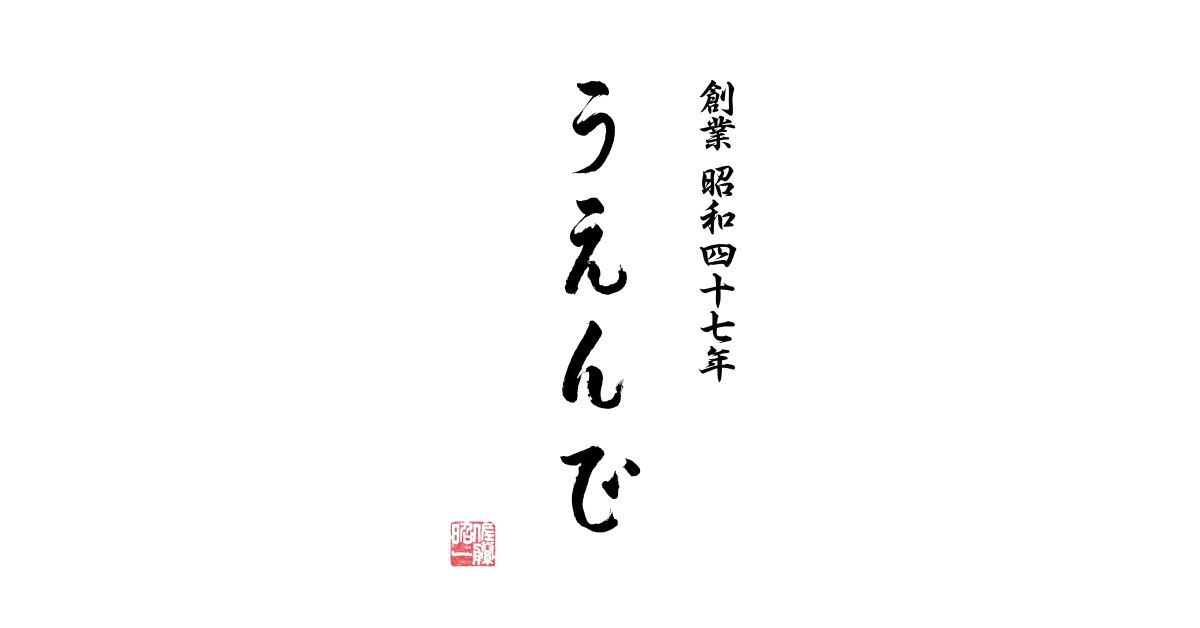 創業 昭和四十七年
うえんで